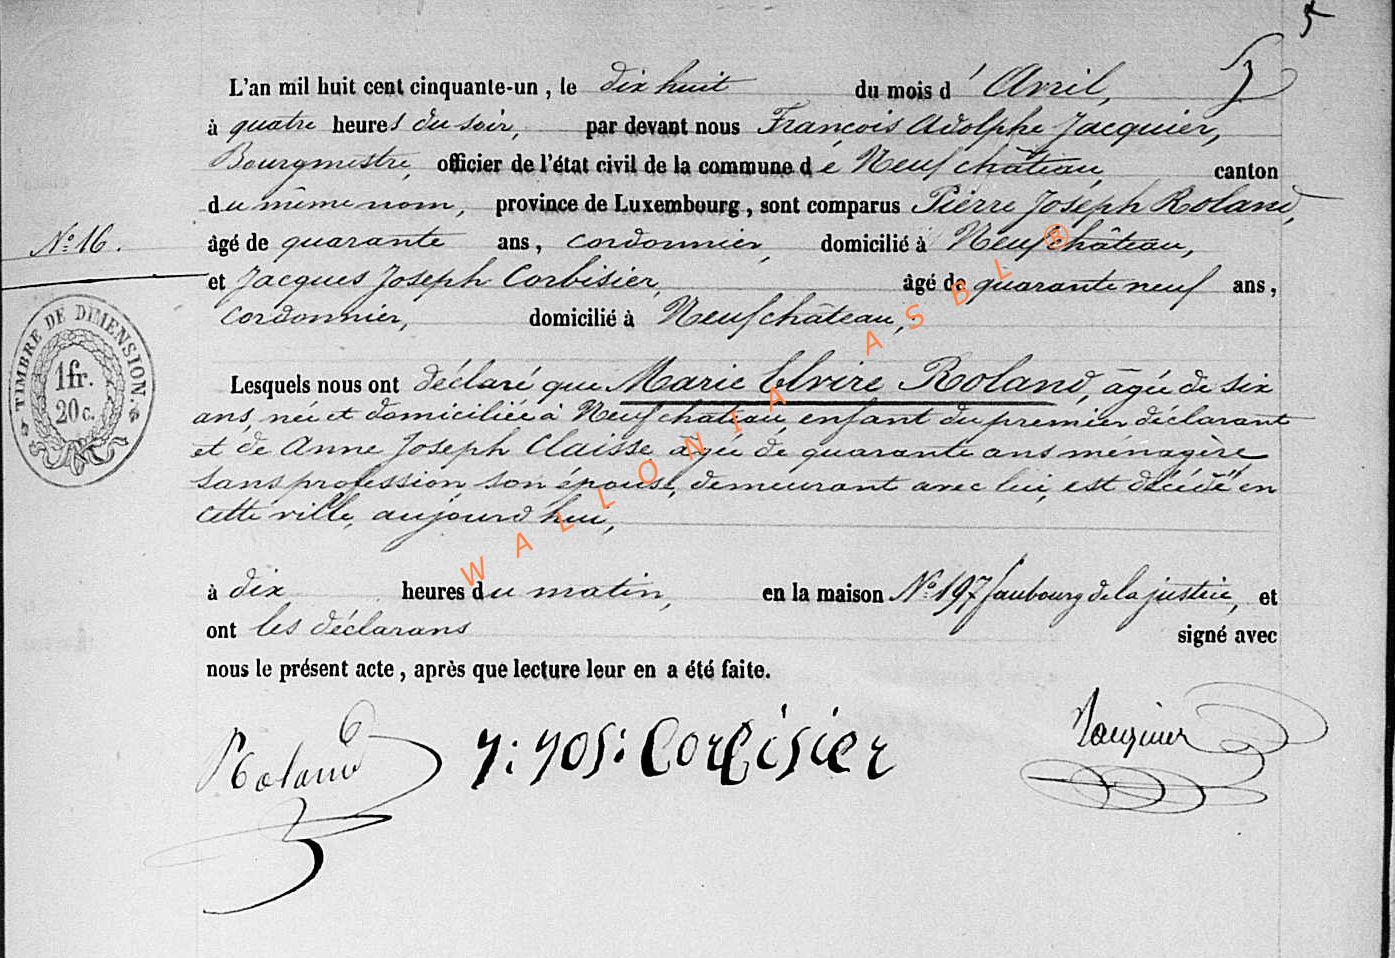 5
5
L'an mil huit cent cinquante-un, le dix huit du mois d'Avril,
à quatre heures du soir, par devant nous François Adolphe Jacquier,
Bourgmestre, officier de l'état civil de la commune de Neufchâteau, canton
du même nom, province de Luxembourg, sont comparus Pierre Joseph Roland,
N.o 16.
âgé de quarante ans, cordonnier, domicilié à Neufchâteau,
et Jacques Joseph Corbisier, âgé de quarante neuf ans,
cordonnier, domicilié à Neufchâteau,
TIMBRE DE DIMENSION.
1fr.
20c.
Lesquels nous ont déclaré que Marie Elvire Roland, âgée de six
ans, née et domiciliée à Neufchateau, enfant du premier déclarant
et de Anne Joseph Claisse âgée de quarante ans menagère
sans profession son épouse, demeurant avec lui, est décédé en
cette ville, aujourd'hui,
à dix heures du matin, en la maison N.o 197 faubourg de la justice, et
ont les déclarans signé avec
nous le présent acte, après que lecture leur en a été faite.
Roland J: JOS: Corbisier Jacquier
WALLONIA ASBL ®